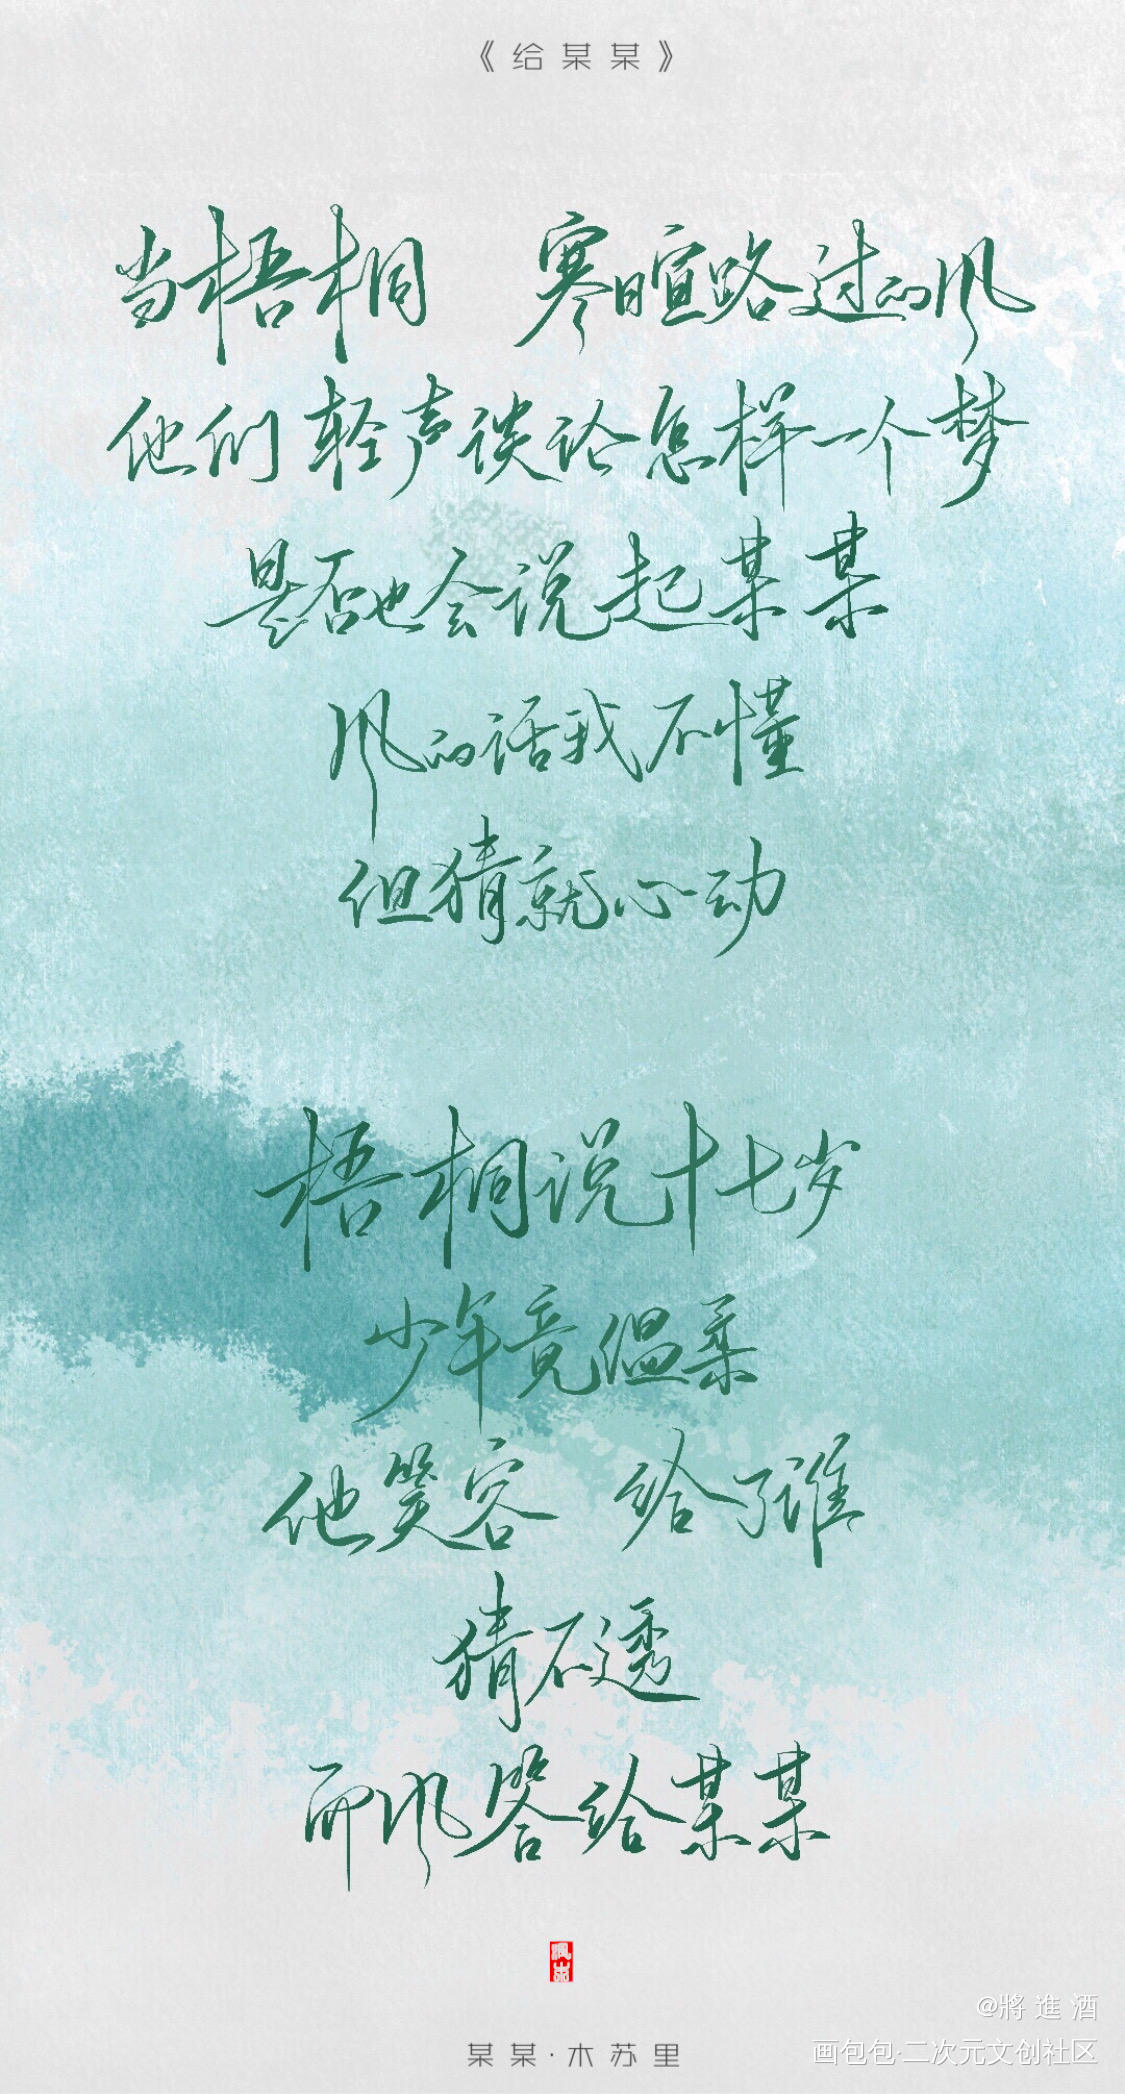 《给某某》
当梧桐 寒暄路过的风
他们轻声谈论怎样一个梦
是否也会说起某某
风的话我不懂
但猜就心动
梧桐说十七岁
少年竟温柔
他笑容 给了谁
猜不透
而风答给某某
@將進酒
某某·木苏里
画包包·二次元文创社区